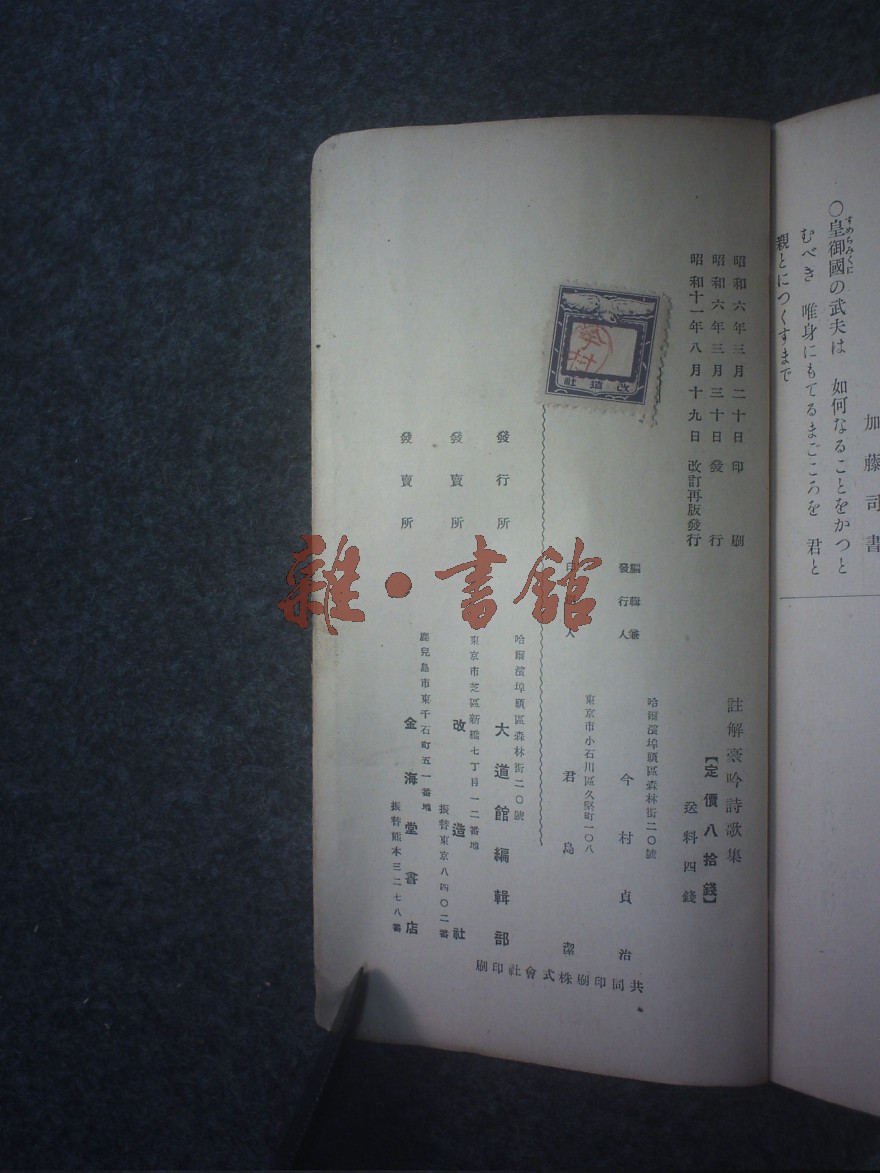 加藤司書
○皇御國の武夫は　如何なることをかつと
すめらみくに
むべき　唯身にもてるまごころを　君と
親とにつくすまで
昭和六年三月二十日印刷
昭和六年三月三十日發行
昭和十一年八月十九日改訂再版發行
註解豪吟詩歌集
【定價八拾錢】
送料四錢
編輯兼
發行人
哈爾濱埠頭區森林街二〇號
今村貞治
東京市小石川區久堅町一〇八
君島潔
改造社
今村
發行所
哈爾濱埠頭區森林街二〇號
大道館編輯部
發賣所
東京市芝區新橋七丁目一二番地
改造社
振替東京八四〇二番
發賣所
鹿兒島市東千石町五一番地
金海堂書店
振替熊本三二七八番
共同印刷株式會社印刷
雜·書館